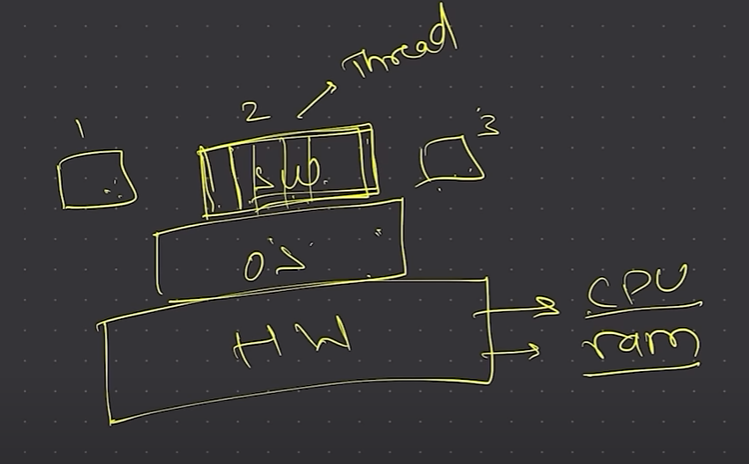 Thread
1
2
3
OS
HW
CPU
ram